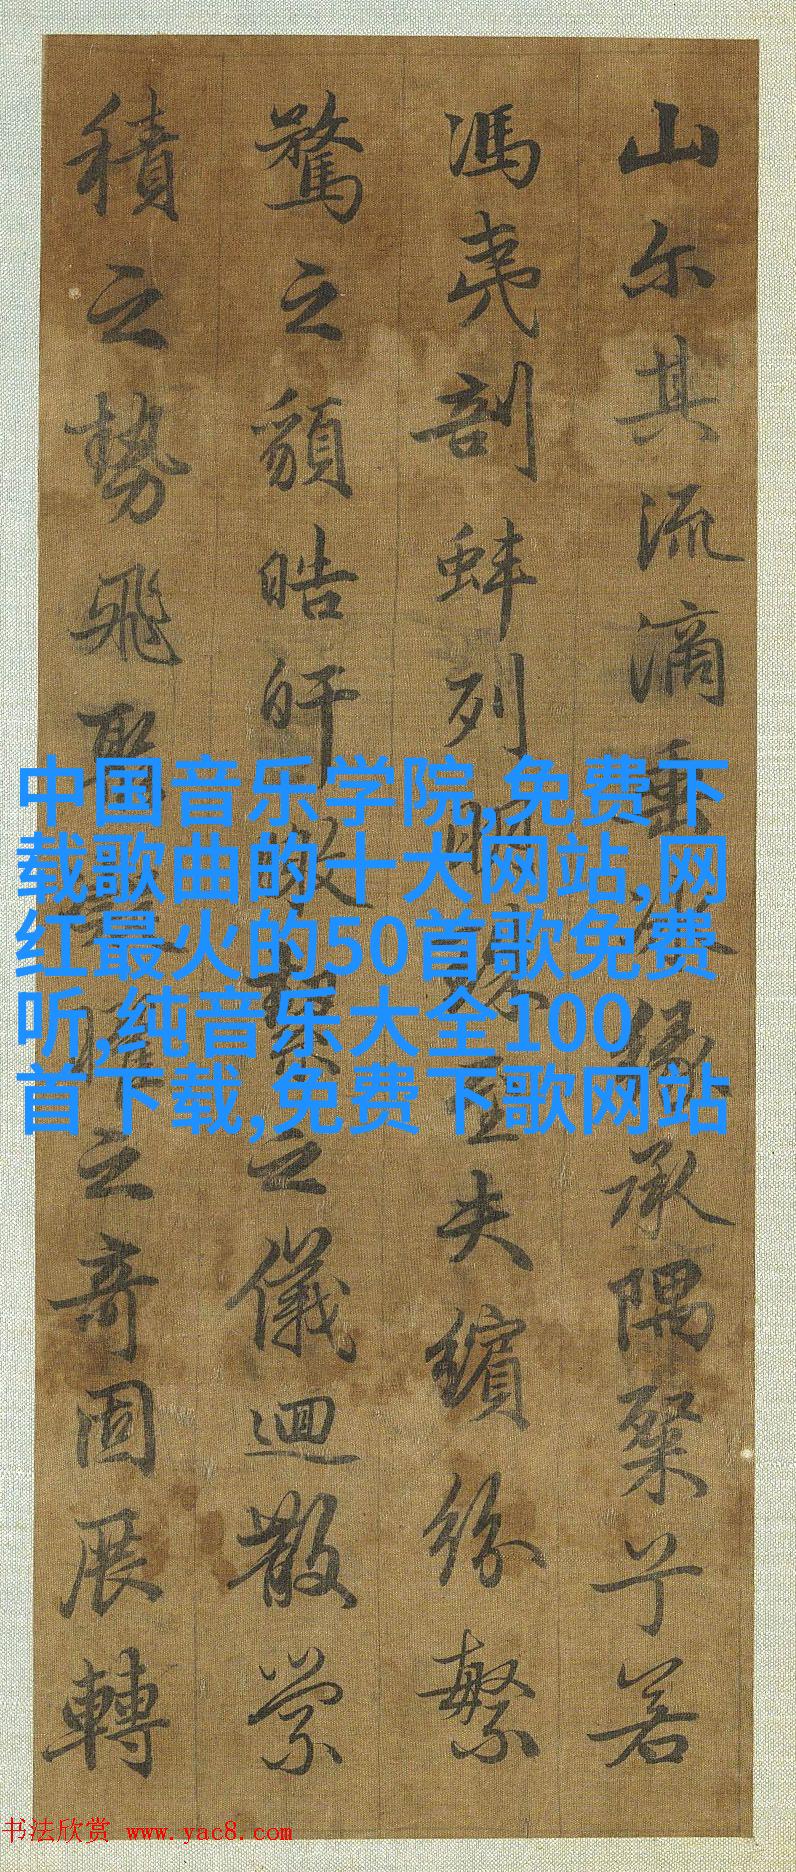 山尔其流滴垂冰缘承隅粲兮若
馮夷剖蚌列明珠至夫繽紛繁
騖之貌皓皔曒絜之儀迴散縈
積之勢飛聚凝曜之奇固展轉
中国音乐学院,免费下
载歌曲的十大网站,网
红最火的50首歌免费
听,纯音乐大全100
首下载,免费下歌网站
书法欣赏 www.yac8.com